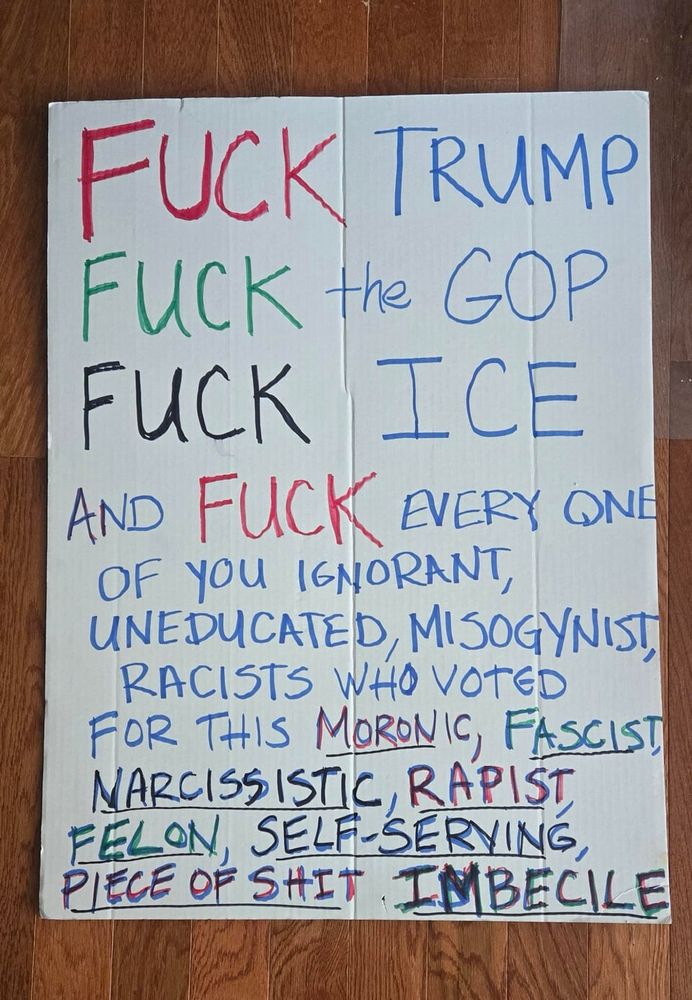 FUCK TRUMP
FUCK the GOP
FUCK ICE
AND FUCK EVERY ONE
OF YOU IGNORANT,
UNEDUCATED, MISOGYNIST,
RACISTS WHO VOTED
FOR THIS MORONIC, FASCIST,
NARCISSISTIC, RAPIST,
FELON, SELF-SERVING,
PIECE OF SHIT IMBECILE